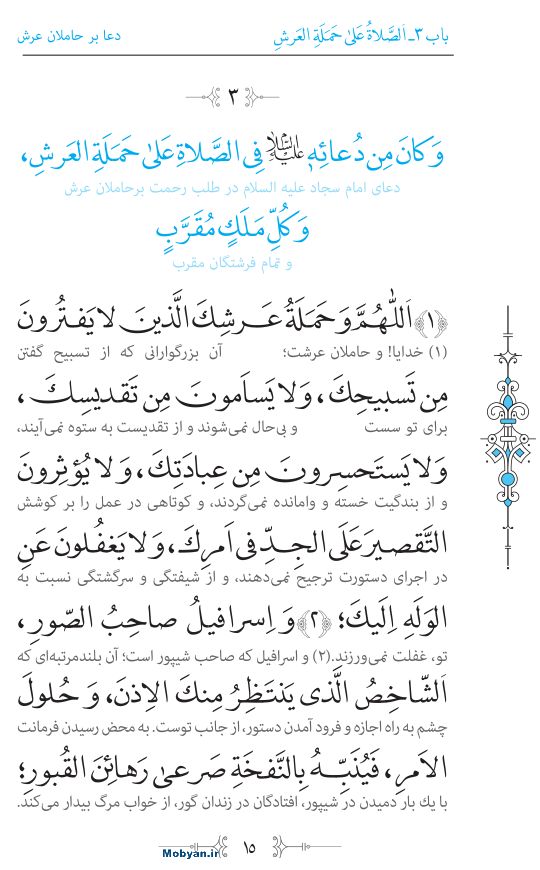 باب ۳ـ اَلصَّلاةُ عَلىٰ حَمَلَةِ العَرشِ
دعا بر حاملان عرش
۳
وَ كانَ مِن دُعائِهِ عَلَيْهِ السَّلامُ فِی الصَّلاةِ عَلىٰ حَمَلَةِ العَرشِ،
دعای امام سجاد علیه السلام در طلب رحمت برحاملان عرش
وَ كُلِّ مَلَكٍ مُقَرَّبٍ
و تمام فرشتگان مقرب
﴿۱﴾ اَللّٰهُمَّ وَ حَمَلَةُ عَرشِكَ الَّذينَ لا يَفتُرونَ
(۱) خدایا! و حاملان عرشت؛ آن بزرگوارانی که از تسبیح گفتن
مِن تَسبيحِكَ، وَ لا يَسأَمونَ مِن تَقديسِكَ،
برای تو سست و بی‌حال نمی‌شوند و از تقدیست به ستوه نمی‌آیند،
وَ لا يَستَحسِرونَ مِن عِبادَتِكَ، وَ لا يُؤثِرونَ
و از بندگیت خسته و وامانده نمی‌گردند، و کوتاهی در عمل را بر کوشش
التَّقصيرَ عَلَى الجِدِّ فى اَمرِكَ، وَ لا يَغفُلونَ عَنِ
در اجرای دستورت ترجیح نمی‌دهند، و از شیفتگی و سرگشتگی نسبت به
الوَلَهِ اِلَيكَ؛ ﴿۲﴾ وَ اِسرافيلُ صاحِبُ الصّورِ،
تو، غفلت نمی‌ورزند. (۲) و اسرافیل که صاحب شیپور است؛ آن بلندمرتبه‌ای که
اَلشّاخِصُ الَّذى يَنتَظِرُ مِنكَ الاِذنَ، وَ حُلولَ
چشم به راه اجازه و فرود آمدن دستور، از جانب توست. به محض رسیدن فرمانت
الاَمرِ، فَيُنَبِّهُ بِالنَّفخَةِ صَرعىٰ رَهائِنَ القُبورِ؛
با یك بار دمیدن در شیپور، افتادگان در زندان گور، از خواب مرگ بیدار می‌کند.
۱۵
Mobyan.ir